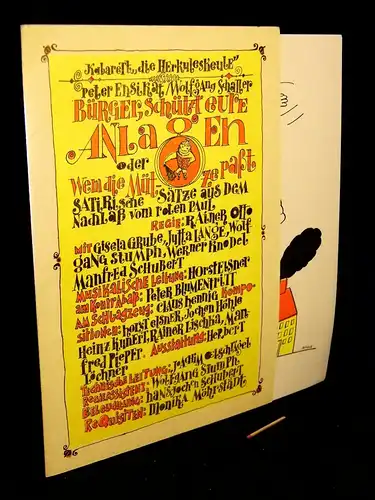 Kabarett „die Herkuleskeule"
Peter Ensikat/Wolfgang Schaller
Bürger, schützt eure
Anlagen
oder
Wem die Müt-
ze paßt
Satirische Sätze aus dem
Nachlaß vom roten Paul
Regie: Rainer Otto
mit Gisela Grube, Jutta Lange, Wolf-
gang Stumph, Werner Knodel
Manfred Schubert
Musikalische Leitung: Horst Elsner
am Kontrabaß: Peter Blumentritt
am Schlagzeug: Claus Hennig Kompo-
sitionen: Horst Elsner, Jochen Höhle
Heinz Kunert, Rainer Lischka, Man-
fred Pieper Ausstattung: Herbert
Löchner
Technische Leitung: Joachim
Regieassistent: Wolfgang Stumph
Beleuchtung: Hans-Jochen Schubert
Requisiten: Monika Möhrstädt